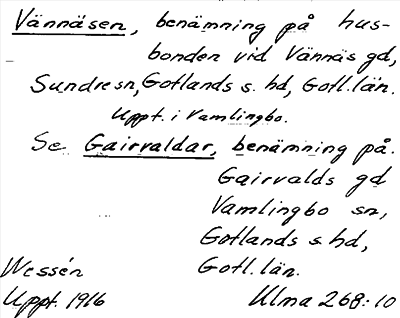 Vännäsen, benämning på hus-
bonden vid Vännäs gd,
Sundre sn, Gotlands s. hd, Gotl. län.
Uppt. i Vamlingbo.
Se Gairvaldar, benämning på.
Gairvalds gd
Vamlingbo sn,
Gotlands s. hd,
Gotl. län.
Wessén
Uppt. 1916
Ulma 268:10